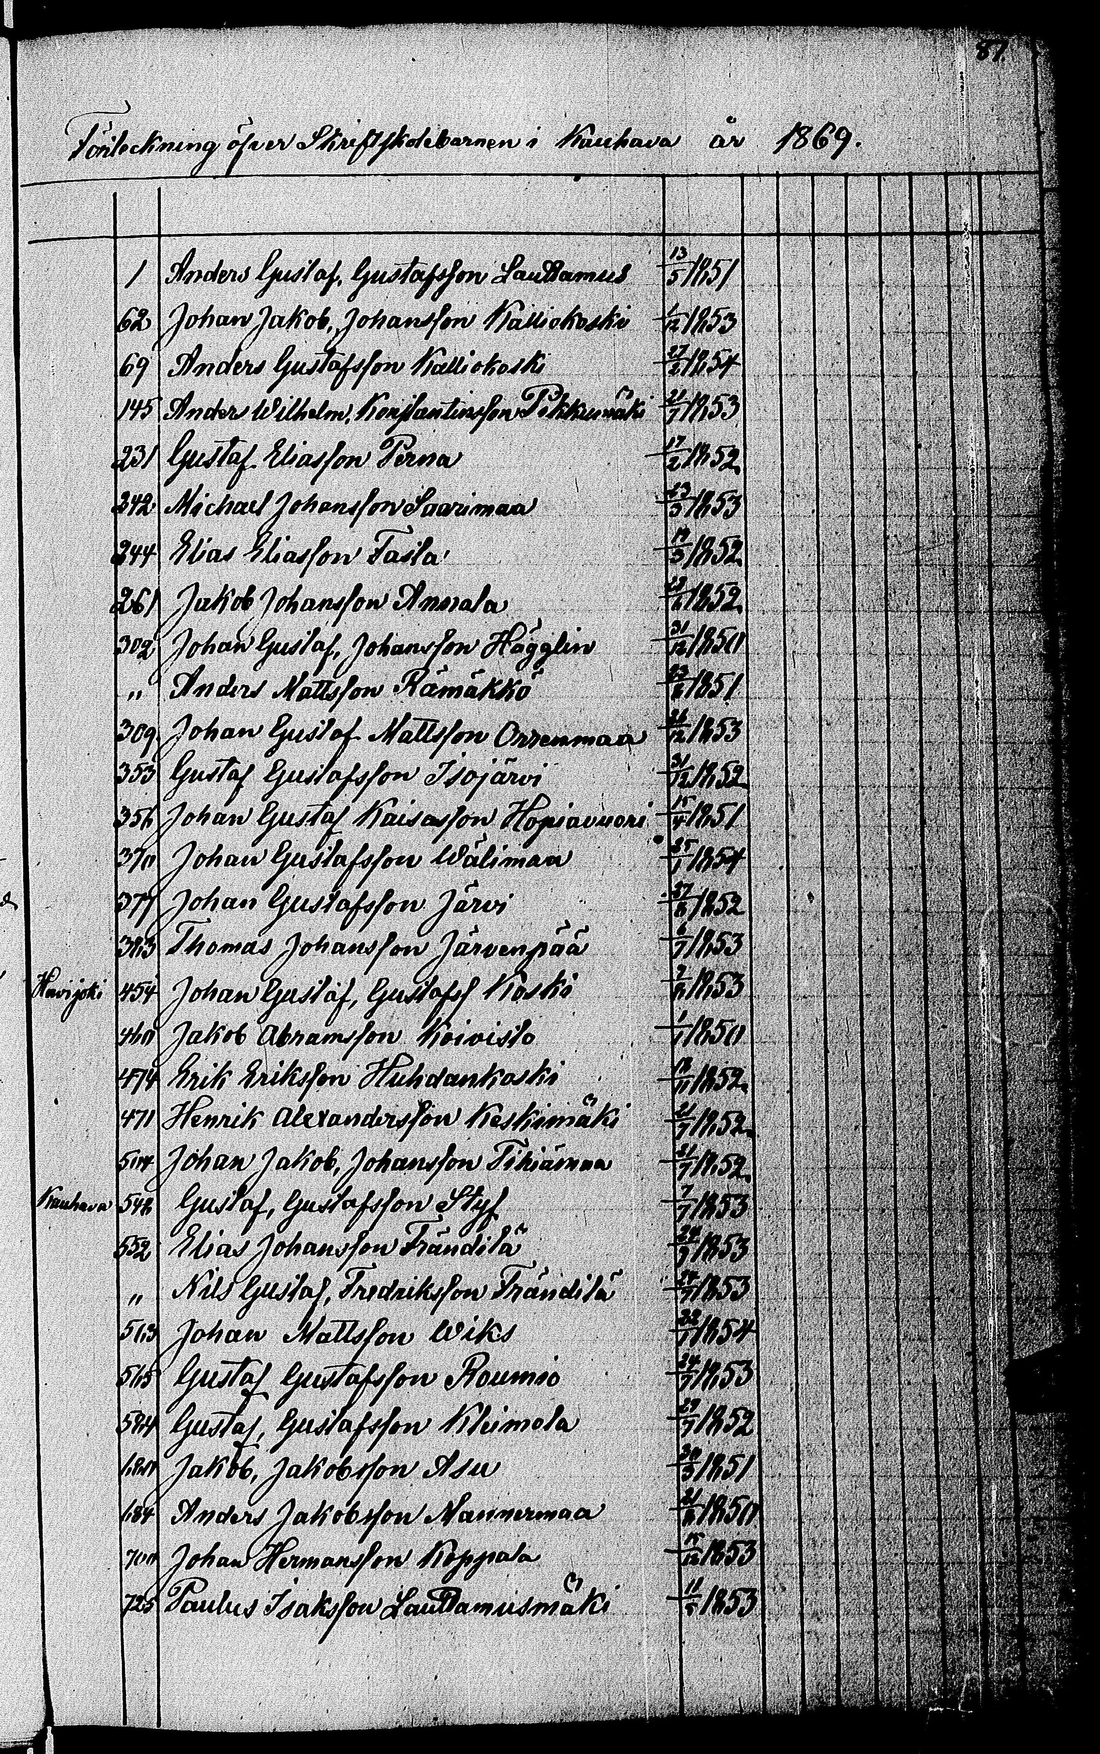 87.
Förteckning öfver Skriftskolebarnen i Kauhava år 1869.
1 Anders Gustaf, Gustafsson Lauttamus 13/5 1851
62 Johan Jakob, Johansson Kalliokoski 1/12 1853
69 Anders Gustafsson Kalliokoski 27/2 1854
145 Anders Wilhelm, Konstantinsson Pikkumäki 21/7 1853
231 Gustaf Eliasson Perna 17/2 1852.
242 Michael Johansson Saarimaa 23/3 1853
244 Elias Eliasson Taila 1852.
261 Jakob Johansson Annala 1852.
302 Johan Gustaf, Johansson Hägglin 31/12 1850
" Anders Mattsson Rämäkkö 23/6 1851
309 Johan Gustaf Mattsson Orrenmaa 26/12 1853
353 Gustaf Gustafsson Isojärvi 31/12 1852.
356 Johan Gustaf Kaisasson Hopiavuori 15/4 1851
370 Johan Gustafsson Wälimaa 25/1 1854
377 Johan Gustafsson Järvi 27/8 1852
383 Thomas Johansson Järvenpää 6/7 1853
454 Johan Gustaf, Gustafss Koski 1853
460 Jakob Abramsson Koivisto 1/1 1850
474 Erik Eriksson Huhdankoski 18/11 1852.
471 Henrik Alexandersson Keskimäki 21/7 1852.
504 Johan Jakob, Johansson 21/7 1852.
Kauhava 542 Gustaf, Gustafsson Styf 7/7 1853
552 Elias Johansson Frändilä 24/9 1853
" Nils Gustaf, Fredriksson Frändilä 1853
563 Johan Mattsson Wiks 22/1 1854
565 Gustaf Gustafsson Roumio 24/7 1853
584 Gustaf, Gustafsson Kleimola 29/7 1852
680 Jakob, Jakobsson Asu 30/3 1851
684 Anders Jakobsson Mannermaa 21/8 1850
700 Johan Hermansson Koppala 15/12 1853
725 Paulus Isaksson Lauttamusmäki 11/5 1853